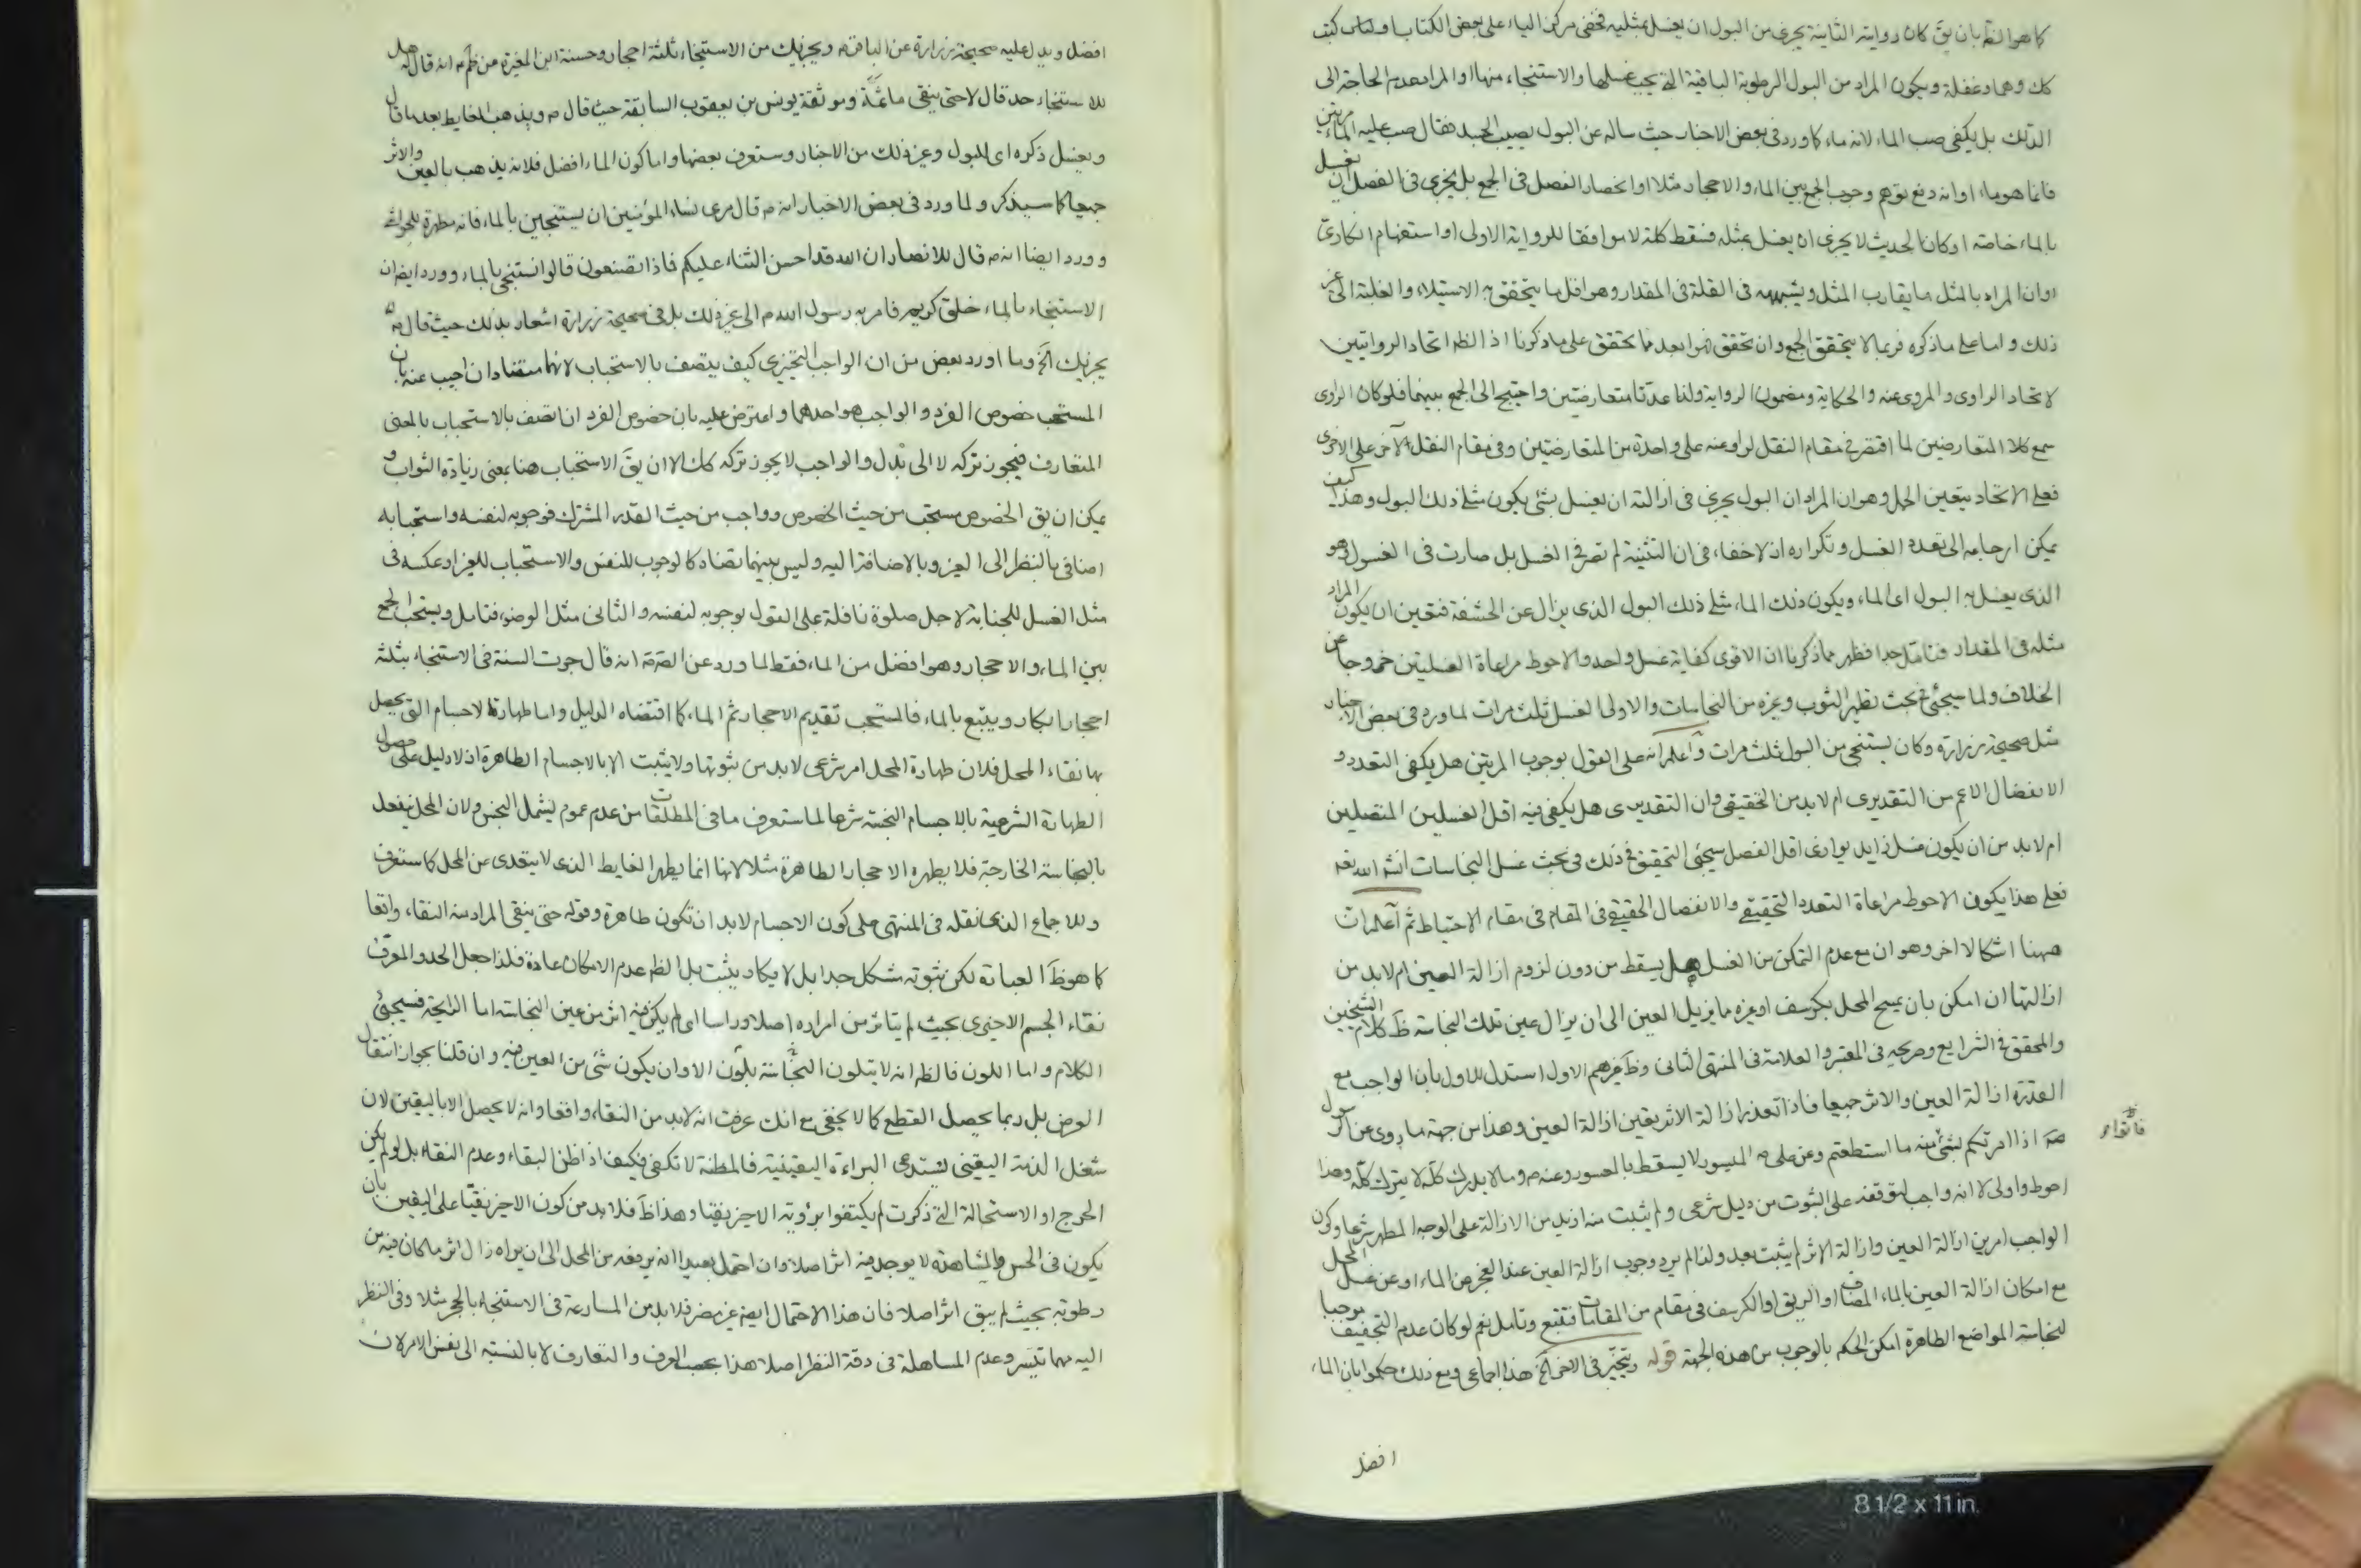 كما هو الظ بان يق كان روايته الثانية يجزى من البول ان يغسل بمثليه فخفى مركز الياء على بعض الكتاب او
كك وهما وغفلة ويكون المراد من البول الرطوبة الباقية التى يجب غسلها والاستنجاء منها او المراد عدم الحاجة الى
الدلك بل يكفى صب الماء لانه ماء كما ورد فى بعض الاخبار حيث ساله عن البول يصيب الجسد فقال صب عليه الماء مرتين
فانما هو ماء او انه دفع توهم وجوب الجمع بين الماء والاحجار مثلا او انحصار الفصل فى الجمع بل يجزى فى الفصل ان يغسل
بالماء خاصة او كان الحديث لا يجزى ان يغسل بمثله فسقط كلمة لا موافقا للرواية الاولى او استفهام انكارى
او ان المراد بالمثل ما يقارب المثل ويشبهه فى القلة فى المقدار وهو اقل ما يتحقق به الاستيلاء والغلبة الى غير
ذلك واما على ما ذكره فربما لا يتحقق الجمع وان تحقق فهو ابعد مما تحقق على ما ذكرنا اذ الظ اتحاد الروايتين
لاتحاد الراوى والمروى عنه والحكاية ومضمون الرواية ولذا عدتا متعارضتين واحتيج الى الجمع بينهما فلو كان الراوى
سمع كلا المتعارضين لما اقتصر فى مقام النقل لراو عنه على واحدة من المتعارضتين وفى مقام النقل لآخر على الاخرى
فعلى الاتحاد يتعين الحمل وهو ان المراد ان البول يجزى فى ازالته ان يغسل بشئ يكون مثلى ذلك البول وهذا كيف
يمكن ارجاعه الى تعدد الغسل وتكراره اذ لا خفاء فى ان التثنية لم تصر فى الغسل بل صارت فى الغسول وهو
الذى يغسل به البول اى الماء ويكون ذلك الماء مثلى ذلك البول الذى يزال عن الحشفة فتعين ان يكون المراد
مثله فى المقدار فتامل جدا فظهر مما ذكرنا ان الاقوى كفاية غسل واحد والاحوط مراعاة الغسلتين خروجا عن
الخلاف ولما سيجئ فى بحث تطهير الثوب وغيره من النجاسات والاولى الغسل ثلث مرات لما ورد فى بعض الاخبار
مثل صحيحة زرارة وكان يستنجى من البول ثلث مرات واعلم انه على القول بوجوب المرتين هل يكفى التعدد و
الانفصال الاعم من التقديرى ام لا بد من الحقيقى وان التقديرى هل يكفى فيه اقل الغسلين المتصلين
ام لا بد من ان يكون فصل زايد يوازى اقل الفصل سيجئ التحقيق فى ذلك فى بحث غسل النجاسات انشاء الله تعه
فعلى هذا يكون الاحوط مراعاة التعدد التحقيقى والانفصال الحقيقى فى المقام فى مقام الاحتياط ثم اعلم ان
ههنا اشكالا اخر وهو ان مع عدم التمكن من الغسل هل يسقط من دون لزوم ازالة العين ام لا بد من
ازالتها ان امكن بان يمسح المحل بكرسف او غيره مما يزيل العين الى ان يزال عين تلك النجاسة ظ كلام الشيخين
والمحقق فى الشرايع وصريحه فى المعتبر والعلامة فى المنتهى الثانى وظ غيرهم الاول استدل للاول بان الواجب مع
القدرة ازالة العين والاثر جميعا فاذا تعذر ازالة الاثر يقين ازالة العين وهذا من جهة ما روى عن الرسول
صه اذا امرتكم بشئ منه ما استطعتم وعن على م الميسور لا يسقط بالمعسور وعنه م وما لا يدرك كله لا يترك كله وهذا
فاتوا
احوط واولى لا انه واجب لتوقفه على الثبوت من دليل شرعى ولم يثبت منه ازيد من الازالة على الوجه المطهر شرعا وكون
الواجب امرين ازالة العين وازالة الاثر لم يثبت بعد ولذا لم يرد وجوب ازالة العين عند العجز عن الماء او عن غسل المحل
مع امكان ازالة العين بالماء المضاف او الريق او الكرسف فى مقام من المقامات فتتبع وتامل نعم لو كان عدم التجفيف موجبا
لنجاسة المواضع الطاهرة امكن الحكم بالوجوب من هذه الجهة قوله ويتخير فى الاخر الخ هذا اجماعى ومع ذلك حكموا بان الماء
افضل
افضل ويدل عليه صحيحة زرارة عن الباقر م ويجزيك من الاستنجاء ثلثة احجار وحسنة ابن المغيرة عن ظم م انه قال له هل
للاستنجاء حد قال لا حتى ينقى ما ثمة وموثقة يونس بن يعقوب السابقة حيث قال م ويذهب الغايط بعد ما قال
ويغسل ذكره اى للبول وغير ذلك من الاخبار وستعرف بعضها واما كون الماء افضل فلانه يذهب بالعين والاثر
جميعا كما سيذكر ولما ورد فى بعض الاخبار انه م قال مرى نساء المؤمنين ان يستنجين بالماء فانه مطهرة للحواشى
وورد ايضا انه م قال للانصار ان الله قد احسن الثناء عليكم فماذا تصنعون قالوا نستنجى بالماء وورد ايضا ان
الاستنجاء بالماء خلق كريم فامر به رسول الله م الى غير ذلك بل فى صحيحة زرارة اشعار بذلك حيث قال م
يجزيك الخ وما اورد بعض من ان الواجب التخييرى كيف يتصف بالاستحباب لانهما متضادان اجيب عنه بان
المستحب خصوص الفرد والواجب هو احدهما واعترض عليه بان خصوص الفرد ان اتصف بالاستحباب بالمعنى
المتعارف فيجوز تركه لا الى بدل والواجب لا يجوز تركه كك الا ان يق الاستحباب هنا بمعنى زيادة الثواب و
يمكن ان يق الخصوص مستحب من حيث الخصوص وواجب من حيث القدر المشترك فوجوبه لنفسه واستحبابه
اضافى بالنظر الى الغير وبالاضافة اليه وليس بينهما تضاد كالوجوب للنفس والاستحباب للغير او عكسه فى
مثل الغسل للجنابة لاجل صلوة نافلة على القول بوجوبه لنفسه والثانى مثل الوضوء فتامل ويستحب الجمع
بين الماء والاحجار وهو افضل من الماء فقط لما ورد عن الص م انه قال جرت السنة فى الاستنجاء بثلثة
احجار ابكار ويتبع بالماء فالمستحب تقديم الاحجار ثم الماء كما اقتضاه الدليل واما طهارة الاجسام التى يحصل
بها نقاء المحل فلان طهارة المحل امر شرعى لا بد من ثبوتها ولا يثبت الا بالاجسام الطاهرة اذ لا دليل على حصول
الطهارة الشرعية بالاجسام النجسة شرعا لما ستعرف ما فى المطلقات من عدم عموم يشمل النجس ولان المحل ينفعل
بالنجاسة الخارجة فلا يطهره الاحجار الطاهرة مثلا لانها انما يطهر الغايط الذى لا يتعدى عن المحل كما ستعرف
وللاجماع الذى نقله فى المنتهى على كون الاجسام لا بد ان تكون طاهرة وقوله حتى ينقى المراد منه النقاء واقعا
كما هو ظ العبارة لكن ثبوته مشكل جدا بل لا يكاد يثبت بل الظ عدم الامكان عادة فلذا جعل الحد والمعرف
نقاء الجسم الاخير اى بحيث لم يتاثر من امراره اصلا وراسا اى لم يكن فيه اثر من عين النجاسة اما الرايحة فسيجئ
الكلام واما اللون فالظ انه لا يتلون النجاسة بلون الا وان يكون شئ من العين فيه وان قلنا بجواز انتقال
العرض بل ربما يحصل القطع كما لا يخفى مع انك عرفت انه لا بد من النقاء واقعا وانه لا يحصل الا باليقين لان
شغل الذمة اليقينى يستدعى البراءة اليقينية فالمظنة لا تكفى فكيف اذا ظن البقاء وعدم النقاء بل لو لم يكن
الحرج او الاستحالة التى ذكرت لم يكتفوا برؤية الاخير نقيا وهذا ظ فلا بد من كون الاخير نقيا على اليقين بان
يكون فى الحس والمشاهدة لا يوجد فيه اثر اصلا وان احتمل بعيدا انه يرفعه من المحل الى ان يراه زال اثر ما كان فيه من
رطوبة بحيث لم يبق اثر اصلا فان هذا الاحتمال ايضا غير مضر فلا بد من المسارعة فى الاستنجاء بالحجر مثلا وفى النظر
اليه مهما تيسر وعدم المساهلة فى دقة النظر اصلا هذا بحسب العرف والتعارف لا بالنسبة الى نفس الامر لان
8 1/2 x 11 in.